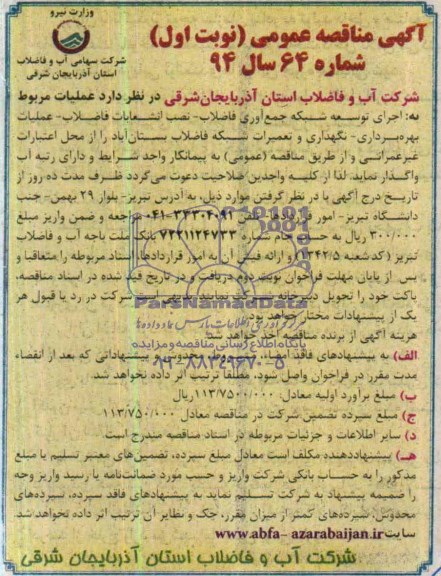 وزارت نیرو
شرکت سهامی آب و فاضلاب
استان آذربایجان شرقی
آگهی مناقصه عمومی (نوبت اول)
شماره ۶۴ سال ۹۴
شرکت آب و فاضلاب استان آذربایجان‌شرقی در نظر دارد عملیات مربوط
به: اجرای توسعه شبکه جمع‌آوری فاضلاب- نصب انشعابات فاضلاب- عملیات
بهره‌برداری- نگهداری و تعمیرات شبکه فاضلاب بستان‌آباد را از محل اعتبارات
غیرعمرانی و از طریق مناقصه (عمومی) به پیمانکار واجد شرایط و دارای رتبه آب
واگذار نماید. لذا از کلیه واجدین صلاحیت دعوت می‌گردد ظرف مدت ده روز از
تاریخ درج آگهی با در نظر گرفتن موارد ذیل، به آدرس تبریز- بلوار ۲۹ بهمن- جنب
دانشگاه تبریز- امور قراردادها تلفن ۰۴۱ مراجعه و ضمن واریز مبلغ
۳۰۰/۰۰۰ ریال به حساب جام شماره ۷۲۲۱۱۲۴۷۳۳ بانک ملت باجه آب و فاضلاب
تبریز (کد شعبه ۱۳۴۲/۵) و ارائه فیش آن به امور قراردادها، اسناد مربوطه را متعاقبا و
پس از پایان مهلت فراخوان نوبت دوم دریافت و در تاریخ قید شده در اسناد مناقصه،
پاکت خود را تحویل دبیرخانه شرکت نمایند. بدیهی است شرکت در رد یا قبول هر
یک از پیشنهادات مختار خواهد بود.
هزینه آگهی از برنده مناقصه اخذ خواهد شد.
الف) به پیشنهادهای فاقد امضاء، مشروط، مخدوش و پیشنهاداتی که بعد از انقضاء
مدت مقرر در فراخوان واصل شود، مطلقا ترتیب اثر داده نخواهد شد.
ب) مبلغ برآورد اولیه معادل: ۱۱۳/۷۵۰۰/۰۰۰ ریال
ج) مبلغ سپرده تضمین شرکت در مناقصه معادل: ۱۱۳/۷۵۰/۰۰۰
د) سایر اطلاعات و جزئیات مربوطه در اسناد مناقصه مندرج است.
هـ) پیشنهاددهنده مکلف است معادل مبلغ سپرده، تضمین‌های معتبر تسلیم یا مبلغ
مذکور را به حساب بانکی شرکت واریز و حسب مورد ضمانت‌نامه یا رسید واریز وجه
را ضمیمه پیشنهاد به شرکت تسلیم نماید به پیشنهادهای فاقد سپرده، سپرده‌های
مخدوش، سپرده‌های کمتر از میزان مقرر، چک و نظایر آن ترتیب اثر داده نخواهد شد.
سایت www.abfa- azarabaijan.ir
شرکت آب و فاضلاب استان آذربایجان شرقی
ParsNamadData
پایگاه اطلاع رسانی مناقصه و مزایده
۰۲۱-۸۸۳۴۹۶۷۰-۵